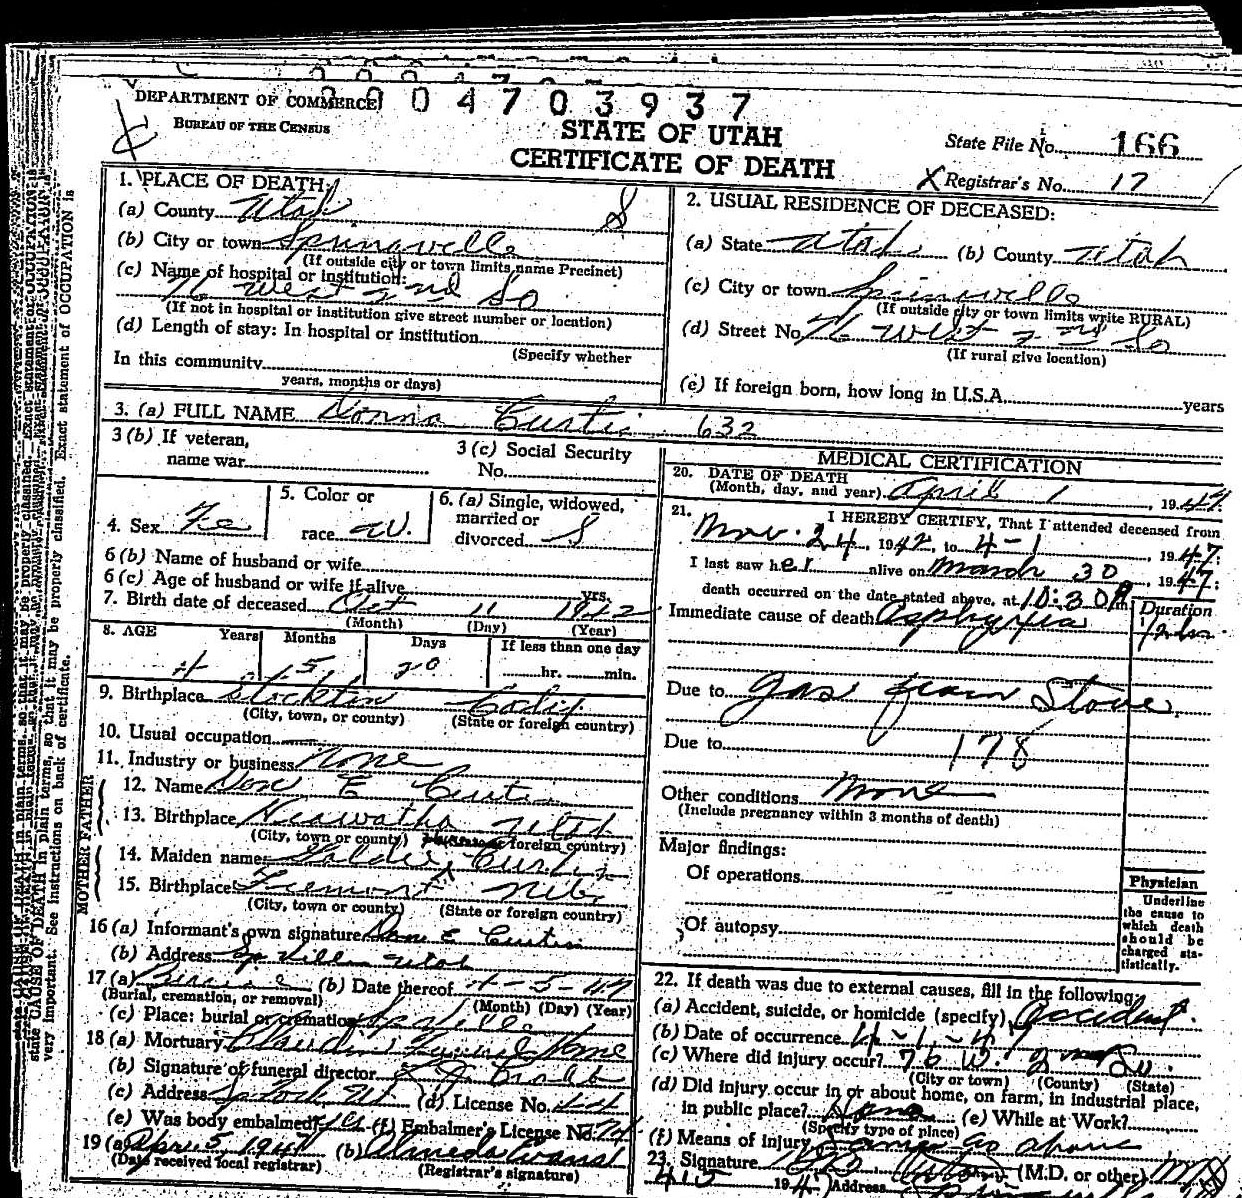 0004703937
DEPARTMENT OF COMMERCE
BUREAU OF THE CENSUS
STATE OF UTAH
CERTIFICATE OF DEATH
State File No. 166
X Registrar's No. 17
1. PLACE OF DEATH:
(a) County Utah S
(b) City or town Springville
(If outside city or town limits, name Precinct)
(c) Name of hospital or institution:
76 West 2nd So
(If not in hospital or institution give street number or location)
(d) Length of stay: In hospital or institution
(Specify whether
In this community
years, months or days)
2. USUAL RESIDENCE OF DECEASED:
(a) State Utah (b) County Utah
(c) City or town Springville
(If outside city or town limits write RURAL)
(d) Street No. 76 West 2nd So
(If rural give location)
(e) If foreign born, how long in U.S.A. years
3. (a) FULL NAME Donna Curtis 632
3 (b) If veteran,
name war
3 (c) Social Security
No.
4. Sex Fe
5. Color or
race W.
6. (a) Single, widowed,
married or
divorced S
6 (b) Name of husband or wife
6 (c) Age of husband or wife if alive yrs.
7. Birth date of deceased Oct 11 1942
(Month) (Day) (Year)
8. AGE Years Months Days If less than one day
4 5 20 hr. min.
9. Birthplace Stockton Calif
(City, town, or county) (State or foreign country)
10. Usual occupation
11. Industry or business None
FATHER
12. Name Don E Curtis
13. Birthplace Hiawatha Utah
(City, town or county) (State or foreign country)
MOTHER
14. Maiden name Goldie Curtis
15. Birthplace Fremont Neb
(City, town or county) (State or foreign country)
16 (a) Informant's own signature Don E Curtis
(b) Address Sp Ville Utah
17 (a) Burial (b) Date thereof 4-5-47
(Burial, cremation, or removal) (Month) (Day) (Year)
(c) Place: burial or cremation Spville
18 (a) Mortuary Funeral Home
(b) Signature of funeral director
(c) Address (d) License No.
(e) Was body embalmed? Yes (f) Embalmer's License No.
19 (a) Apr. 5, 1947 (b) Almeda Evans
(Date received local registrar) (Registrar's signature)
MEDICAL CERTIFICATION
20. DATE OF DEATH
(Month, day, and year) April 1, 1947
21. I HEREBY CERTIFY, That I attended deceased from
Nov. 24, 1942, to 4-1, 1947;
I last saw her alive on March 30, 1947;
death occurred on the date stated above, at 10:30 m
Immediate cause of death Asphyxia
Duration
Due to gas from Stove
Due to 178
Other conditions None
(Include pregnancy within 3 months of death)
Major findings:
Of operations
Of autopsy
Physician
Underline
the cause to
which death
should be
charged sta-
tistically.
22. If death was due to external causes, fill in the following:
(a) Accident, suicide, or homicide (specify) Accident.
(b) Date of occurrence 4-1-47
(c) Where did injury occur? 76 W. 2nd So.
(City or town) (County) (State)
(d) Did injury occur in or about home, on farm, in industrial place,
in public place? Home (e) While at Work?
(Specify type of place)
(f) Means of injury Same as above
23. Signature (M.D. or other) MD
1947 Address